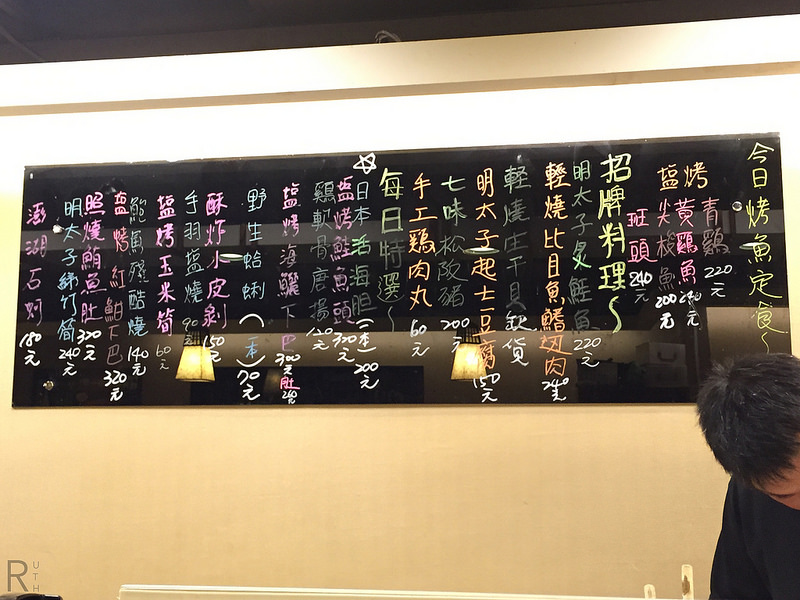 今日烤魚定食～
青雞 220元
烤黃鷄魚 240元
塩尖梭魚 200元
斑頭 240元
招牌料理～
明太子炙鮭魚 220元
輕燒比目魚鰭邊肉 240元
輕燒生干貝 (缺貨
明太子起士豆腐 150元
七味松阪豬 200元
手工鷄肉丸 60元
每日特選～
日本活海胆(一本) 200元
塩烤鮭魚頭 320元
鷄軟骨唐揚 120元
塩烤海鱺下巴 300元 肚 260元
野生蛤蜊(一本) 70元
酥炸小皮剝 150元
手羽塩燒 90元
塩烤玉米筒 60元
鮑魚殼醋燒 140元
塩烤紅魽下巴 320元
照燒鮪魚肚 320元
明太子綠竹筍 240元
澎湖石蚵 180元
RUTH